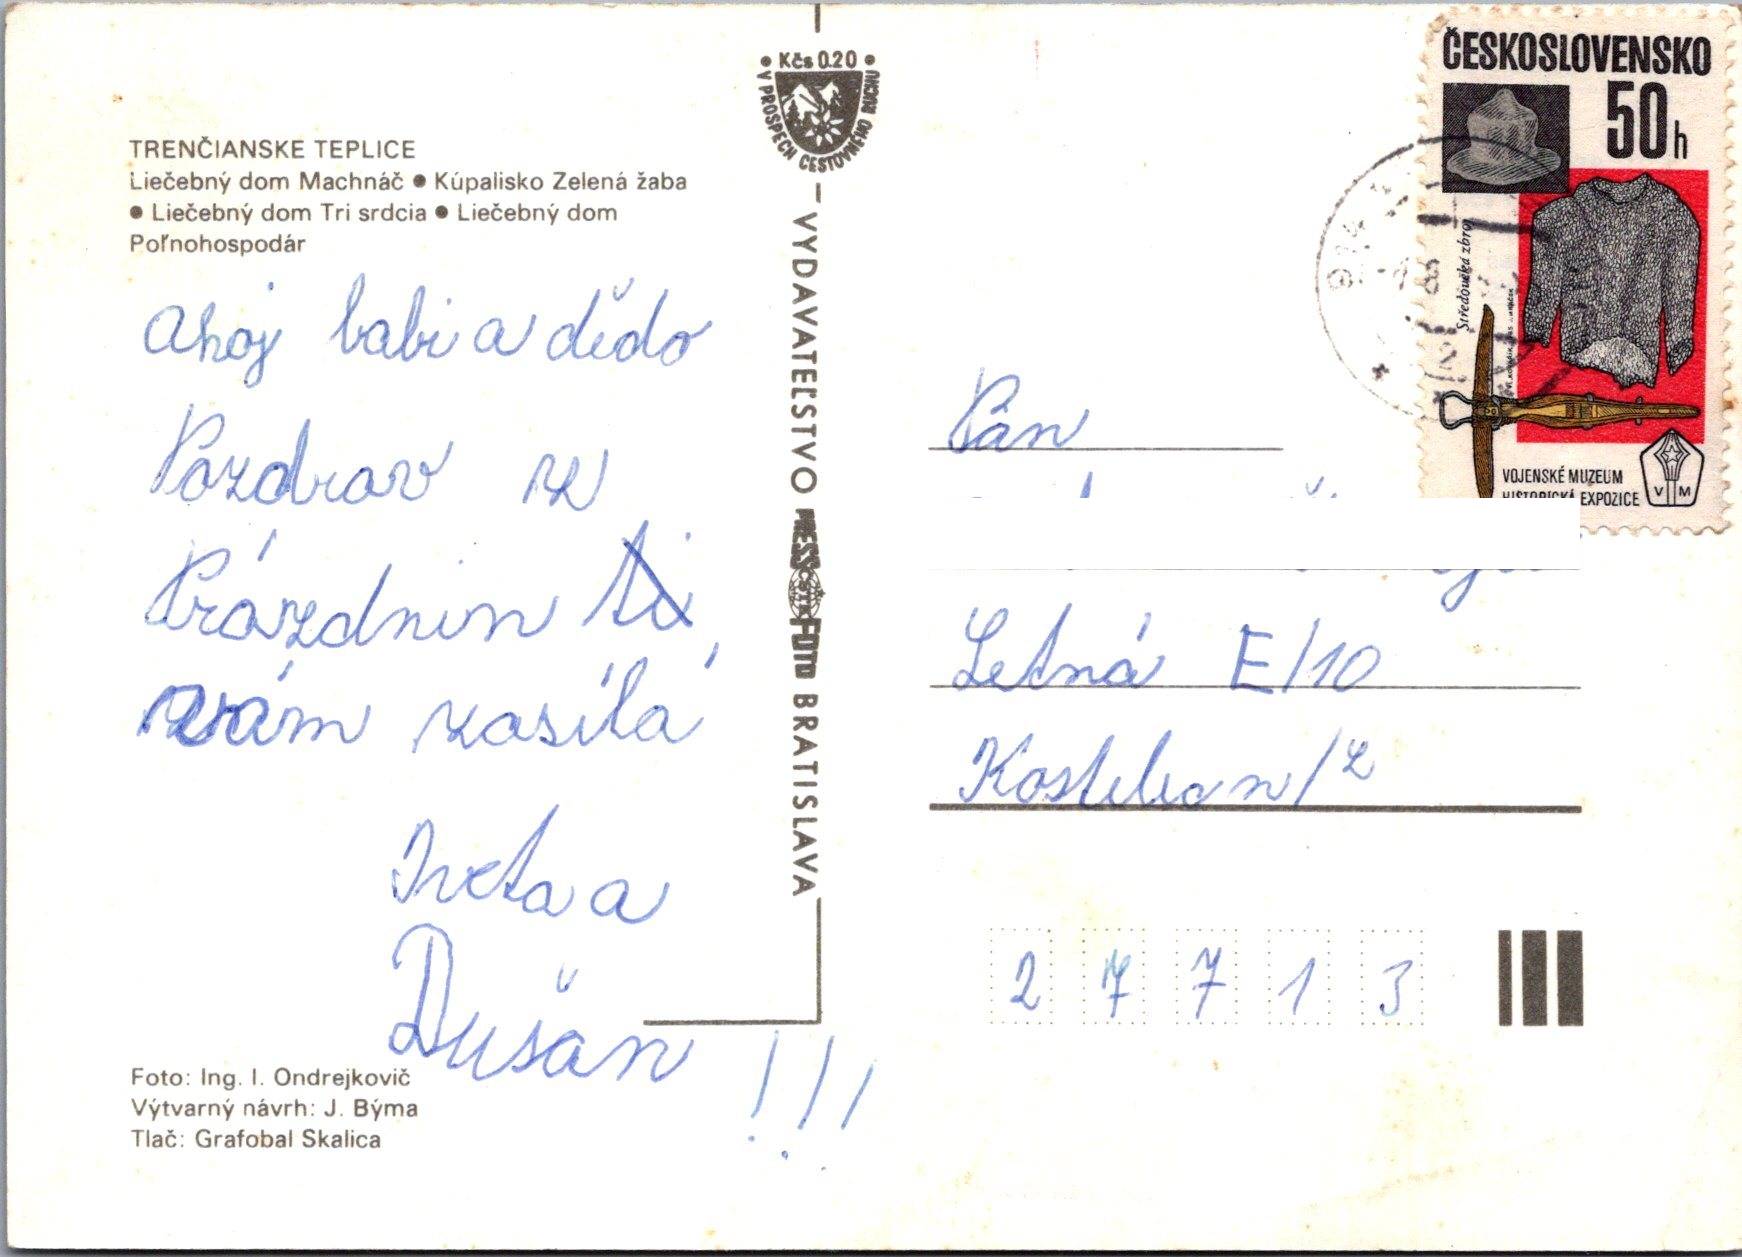 TRENČIANSKE TEPLICE
Liečebný dom Machnáč ● Kúpalisko Zelená žaba
● Liečebný dom Tri srdcia ● Liečebný dom
Poľnohospodár
Ahoj babi a dědo
Pozdrav z
Prázdnin ti
vám zasílá
Iveta a
Dušan !!!
Foto: Ing. I. Ondrejkovič
Výtvarný návrh: J. Býma
Tlač: Grafobal Skalica
Kčs 0.20
V PROSPECH CESTOVNÉHO RUCHU
VYDAVATEĽSTVO PRESSFOTO BRATISLAVA
ČESKOSLOVENSKO
50h
Středověká zbroj
VOJENSKÉ MUZEUM
HISTORICKÁ EXPOZICE
V M
Pán
Letná E/10
Kostelec n/L
277 13